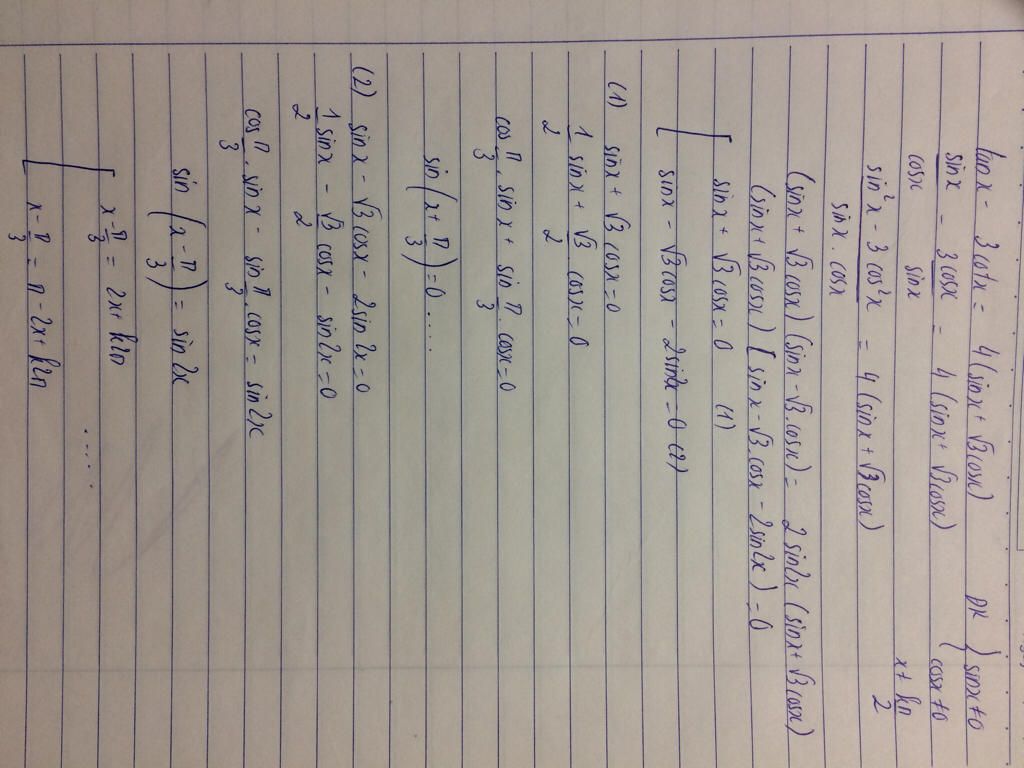 tanx - 3cotx = 4(sinx + √3cosx) ĐK { sinx ≠ 0
sinx/cosx - 3cosx/sinx = 4(sinx + √3cosx) cosx ≠ 0
x ≠ kπ/2
sin²x - 3cos²x / sinx.cosx = 4(sinx + √3cosx)
(sinx + √3cosx)(sinx - √3.cosx) = 2sin2x(sinx + √3cosx)
(sinx + √3cosx)[sinx - √3.cosx - 2sin2x) = 0
[ sinx + √3cosx = 0 (1)
sinx - √3cosx - 2sin2x = 0 (2)
(1) sinx + √3cosx = 0
1/2 sinx + √3/2 cosx = 0
cos π/3 . sinx + sin π/3 . cosx = 0
sin(x + π/3) = 0 ....
(2) sinx - √3cosx - 2sin2x = 0
1/2 sinx - √3/2 cosx - sin2x = 0
cos π/3 . sinx - sin π/3 cosx = sin2x
sin(x - π/3) = sin2x
[ x - π/3 = 2x + k2π
x - π/3 = π - 2x + k2π ....